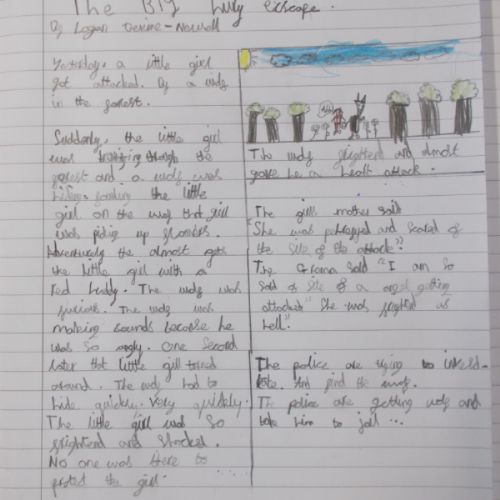 The BIG hudy escape.
By Logan Devine-Nowell
Yesterday, a little girl
got attacked. By a wolf
in the forest.
Suddenly, the little girl
was through the
forest and a wolf was
hiding the little
girl on the way that girl
was piding up flowers.
the almost gets
the little girl with a
red hudy. The wolf was
furious. The wolf was
making sounds because he
was so angly. One second
later that little gill tarned
around. The wolf had to
hide quickly. Very quickly.
The little girl was so
frightend and shocked.
No one was there to
protect the girl.
The wolf frightend and almost
gave he a healt attack.
The girls mother said
She was and scared of
the site of the attack"
The Grama said "I am so
sad of site of a getting
attacked" She was frightend as
hell".
The police are trying to
find the wolf.
The police are getting wolf and
take him to jall ...